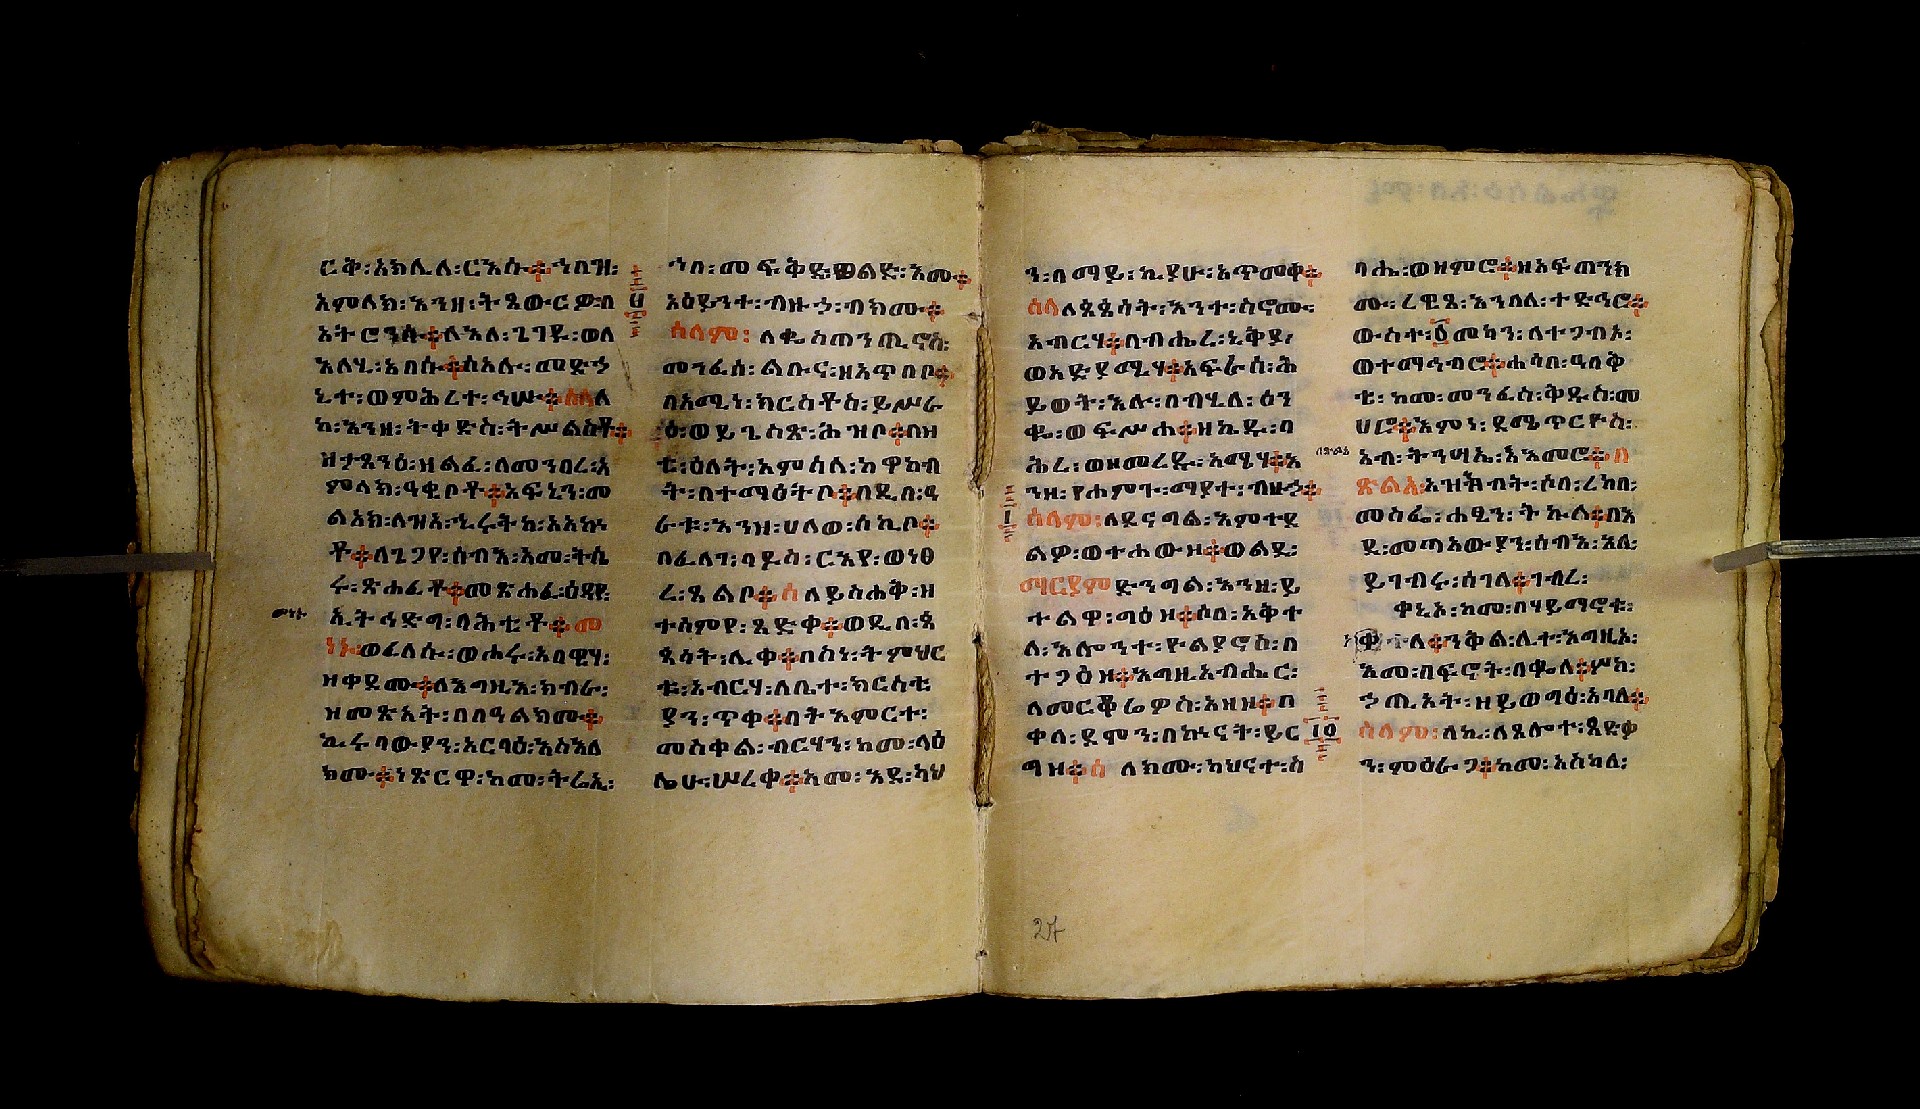 ርቅ፡አክሊለ፡ርእሱ፨ኀበዝ፡
አምላክ፡እንዘ፡ትጼውር፡ዎ፡በ
አትሮንሱ፨ለእለ፡ጌገዩ፡ወለ
እለሂ፡አበሱ፨ሰአሉ፡መድኃ
ኒተ፡ወምሕረተ፡ኀሡ፨ሰላለ
ከ፡እንዘ፡ትቀድስ፡ትሥልስቶ፨
ዘታጸንዕ፡ዘልፈ፡ለመንበረ፡አ
ምላክ፡ዓቂቦቶ፨አፍኒን፡መ
ልአክ፡ለዝአ፡ኄሩትከ፡አአኵ
ቶ፨ለጌጋየ፡ሰብእ፡አመ፡ትሴ
ሩ፡ጽሐፈቶ፨መጽሐፈ፡ዕዳየ፡
ኢትኅድግ፡ባሕቲቶ፨መ
ነኑ፡ወፈለሱ፡ወሐሩ፡አበዊሃ፡
ዘቀደሙ፨ለእግዚእ፡ክብራ፡
ዘመጽአት፡በበዓልክሙ፨
ኪሩባውያን፡አርባዕ፡እስእለ
ክሙ፨ነጽርዋ፡ከመ፡ትሬኢ፡
ኀበ፡መፍቅደ፡ወልድ፡እመ፨
አዕይንተ፡ብዙኃ፡ብክሙ፨
ሰላም፡ ለቈስጠንጢኖስ፡
መንፈሰ፡ልቡና፡ዘአጥበቦ፨
በአሚነ፡ክርስቶስ፡ይሥራ
ዕ፡ወይጌስጽ፡ሕዝቦ፨በዛ
ቲ፡ዕለት፡አምሳለ፡ከዋክብ
ት፡በተማዕትቦ፨በዲበ፡ዓ
ራቱ፡እንዘ፡ሀለወ፡ሰኪቦ፨
በፈለገ፡ባዶስ፡ርእየ፡ወነፀ
ረ፡ጼልቦ፨ሰለይስሐቅ፡ዘ
ተሰምየ፡ጻድቀ፨ወዲበ፡ጻ
ጳሳት፡ሊቀ፨በስነ፡ትምህር
ቱ፡አብርሃ፡ለቤተ፡ክርስቲ
ያን፡ጥቀ፨በትእምርተ፡
መስቀል፡ብርሃን፡ከመ፡ላዕ
ሌሁ፡ሠረቀ፨አመ፡እደ፡ካህ
ን፡በማይ፡ኪያሁ፡አጥመቀ፨
ሰላለጳጳሳት፡እንተ፡ስኖሙ፡
አብርሃ፨በብሔረ፡ኒቅያ፡
ወአድያሚሃ፨አፍራስ፡ሕ
ይወት፡እሉ፡በብሂለ፡ዕን
ቈ፡ወፍሥሐ፨ዘኬዱ፡ባ
ሕረ፡ወዘመረዱ፡አሜሃ፨እ
ንዘ፡የሐምግ፡ማያተ፡ብዙኃ፨
ሰላም፡ለደናግል፡እምተደ
ልዎ፡ወተሐውዘ፨ወልደ፡
ማርያምድንግል፡እንዘ፡ይ
ተልዋ፡ግዕዘ፨ሶበ፡አቅተ
ለ፡እሎንተ፡ዮልያኖስ፡በ
ተግዕዘ፨እግዚአብሔር፡
ለመርቆሬዎስ፡አዘዘ፨በ
ቀላ፡ደሞን፡በኩናት፡ይር
ግዘ፨ሰ ለክሙ፡ካህናተ፡ስ
ባሔ፡ወዘምሮ፨ዘአፍጠንክ
ሙ፡ረዊጸ፡እንበለ፡ተድኅሮ፨
ውስተ፡፩መካን፡ለተጋብኦ፡
ወተማኅብሮ፨ሐሳበ፡ዓበቅ
ቴ፡ከመ፡መንፈስ፡ቅዱስ፡መ
ሀሮ፨እምነ፡ደሜጥርዮስ፡
አብ፡ትንሣኤ፡አእመሮ፨በ
ጽልአ፡አዝሕብት፡ሶበ፡ረከበ፡
መስፌ፡ሐፂን፡ትኩል፨በእ
ደ፡መጣእውያን፡ሰብእ፡እለ፡
ይገብሩ፡ሰገለ፨ገብረ፡
ቀኒአ፡ከመ፡በሃይማኖቱ፡
ለ፨ንቅል፡ሊተ፡እግዚአ፡
እመ፡በፍኖት፡በቈለ፨ሦከ፡
ኃጢአት፡ዘይወግዕ፡አባለ፨
ሰላም፡ለኪ፡ለጸሎተ፡ጻድቃ
ን፡ምዕራጋ፨ከመ፡አስካለ፡
፱
፲
፲፩
27